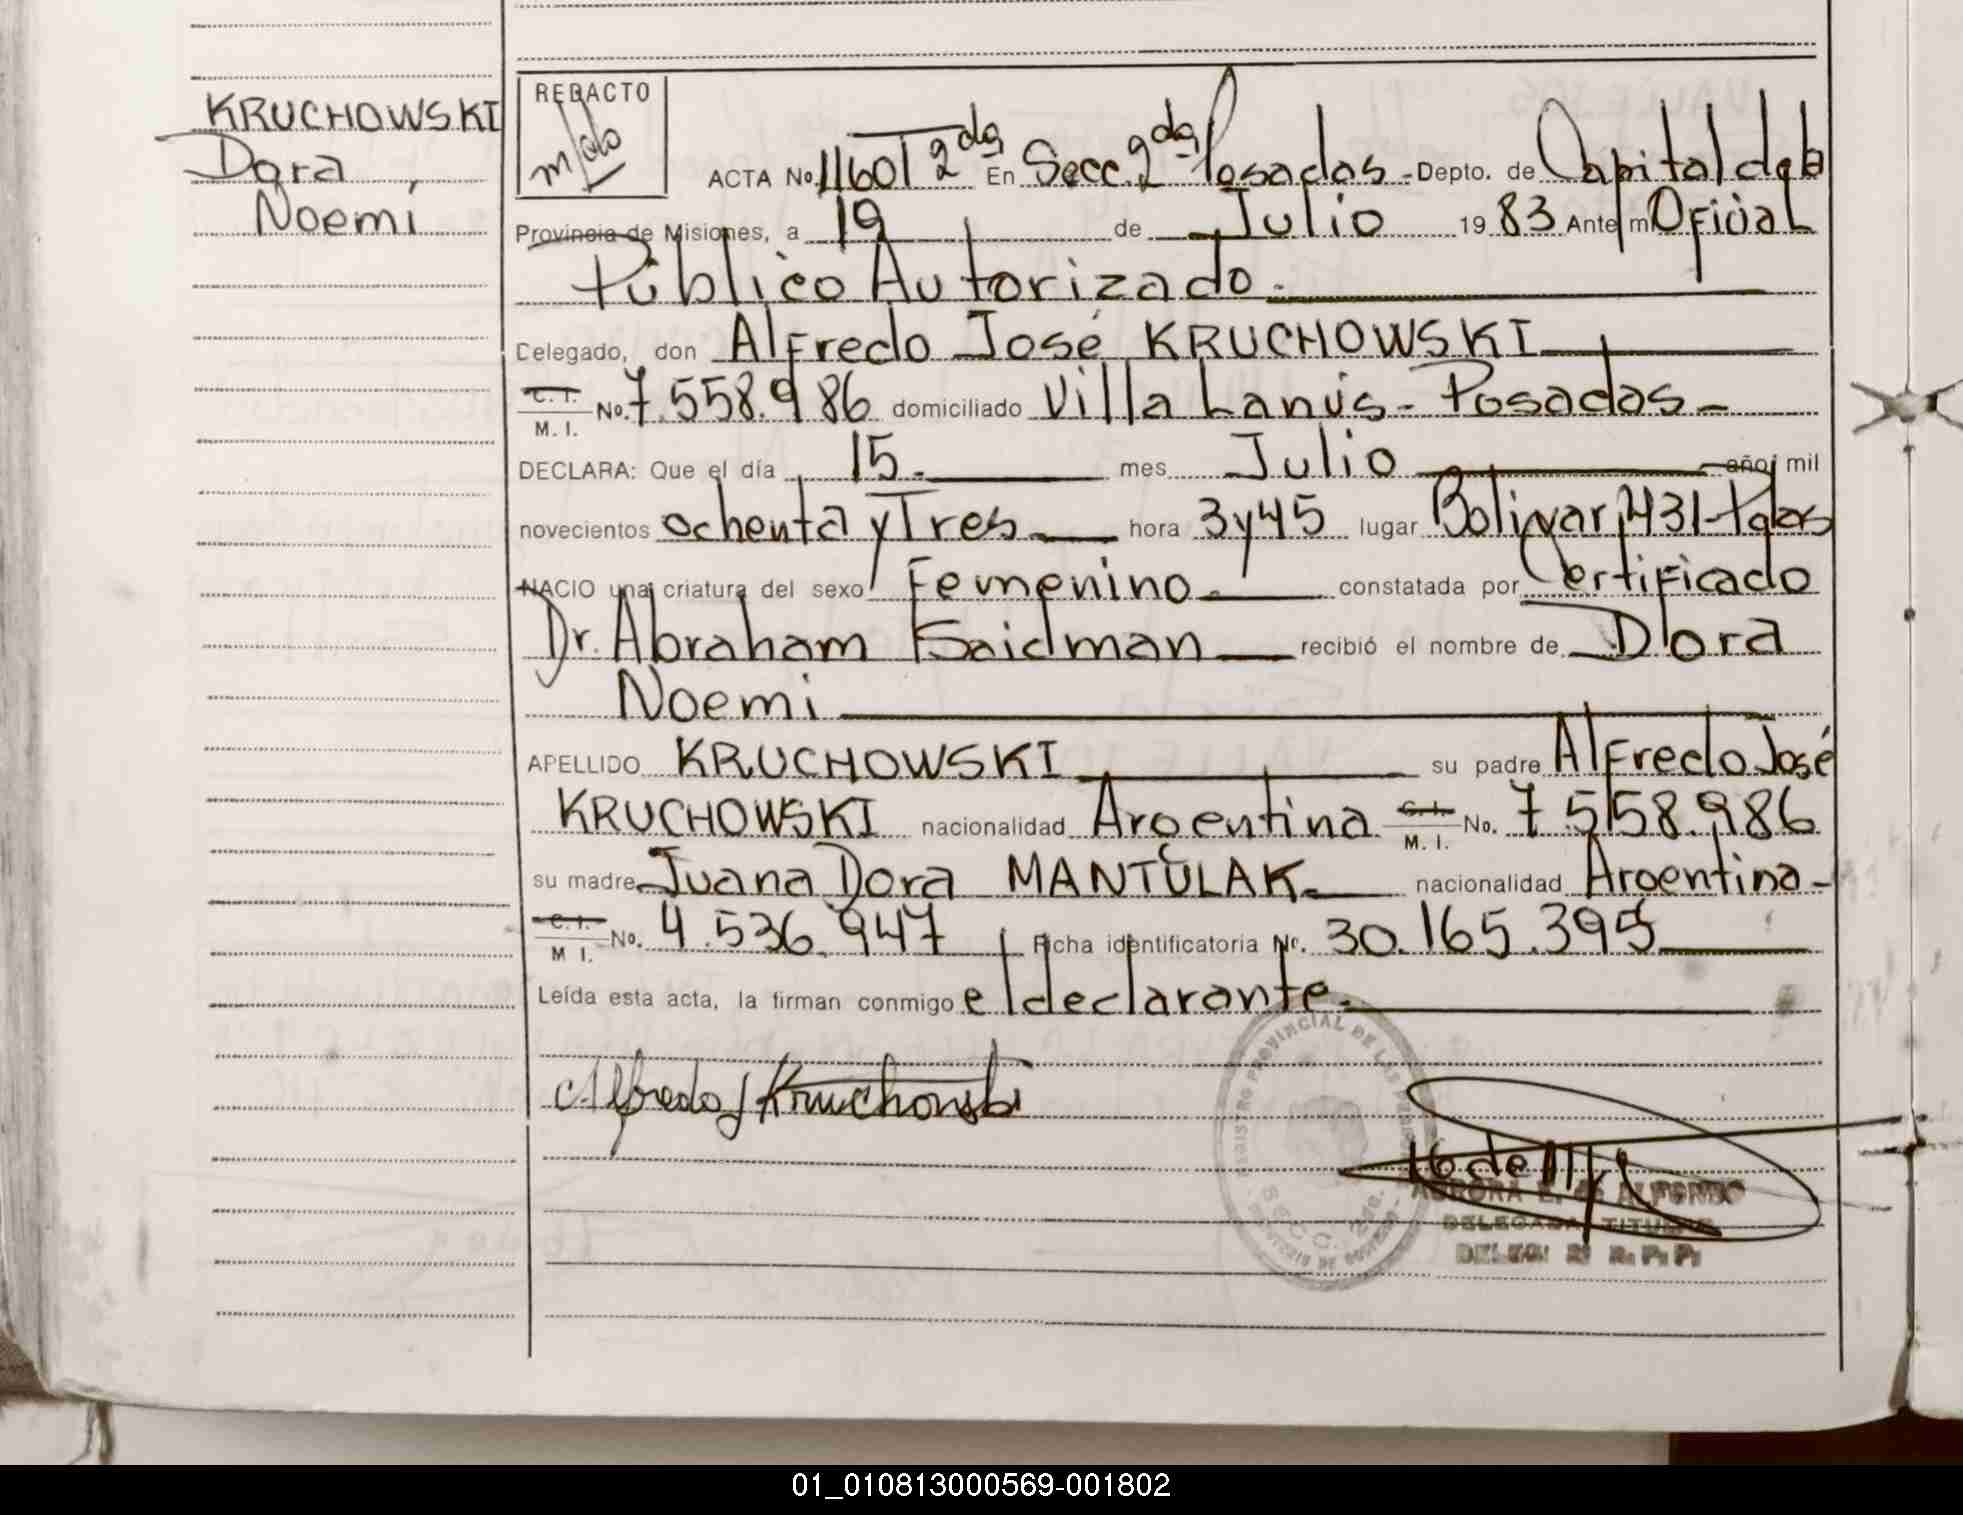 KRUCHOWSKI
Dora
Noemi
REDACTO
ACTA No. 1160 T 2da En Secc. 2da Posadas - Depto. de Capital de la
Provincia de Misiones, a 19 de Julio 1983 Ante mí Oficial
Público Autorizado.
Delegado, don Alfredo José KRUCHOWSKI
C. I.
M. I.
No. 7.558.986 domiciliado Villa Lanús - Posadas -
DECLARA: Que el día 15. mes Julio año mil
novecientos ochenta y Tres hora 3 y 45 lugar Bolivar 431 - Pdas
NACIO una criatura del sexo Femenino constatada por Certificado
Dr. Abraham Saidman recibió el nombre de Dora
Noemi
APELLIDO KRUCHOWSKI su padre Alfredo José
KRUCHOWSKI nacionalidad Argentina C. I. M. I. No. 7.558.986
su madre Juana Dora MANTULAK nacionalidad Argentina -
C. I.
M. I.
No. 4.536.947 Ficha identificatoria Nº. 30.165.395
Leída esta acta, la firman conmigo el declarante.
Alfredo J Kruchowski
REGISTRO PROVINCIAL DE LAS PERSONAS
SECC. 2da.
AURORA E. de ALFONSO
DELEGADA TITULAR
DELEG. 2ª R. P. P.
01_010813000569-001802